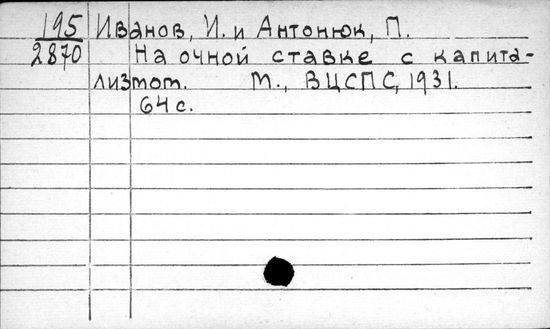 195 Иванов, И. и Антонюк, П.
2870 На очной ставке с капита-
лизмом. М., ВЦСПС, 1931.
64 с.